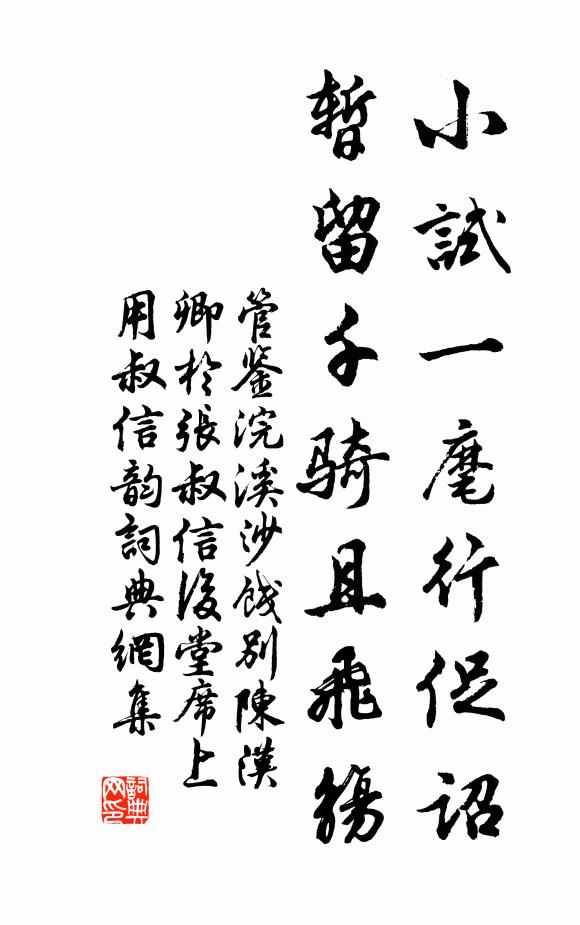 小試一麾行促詔
暫留千騎且飛觴
管鑒浣溪沙餞別陳漢
卿於張叔信後堂席上
用叔信韵詞典網集
詞典網印